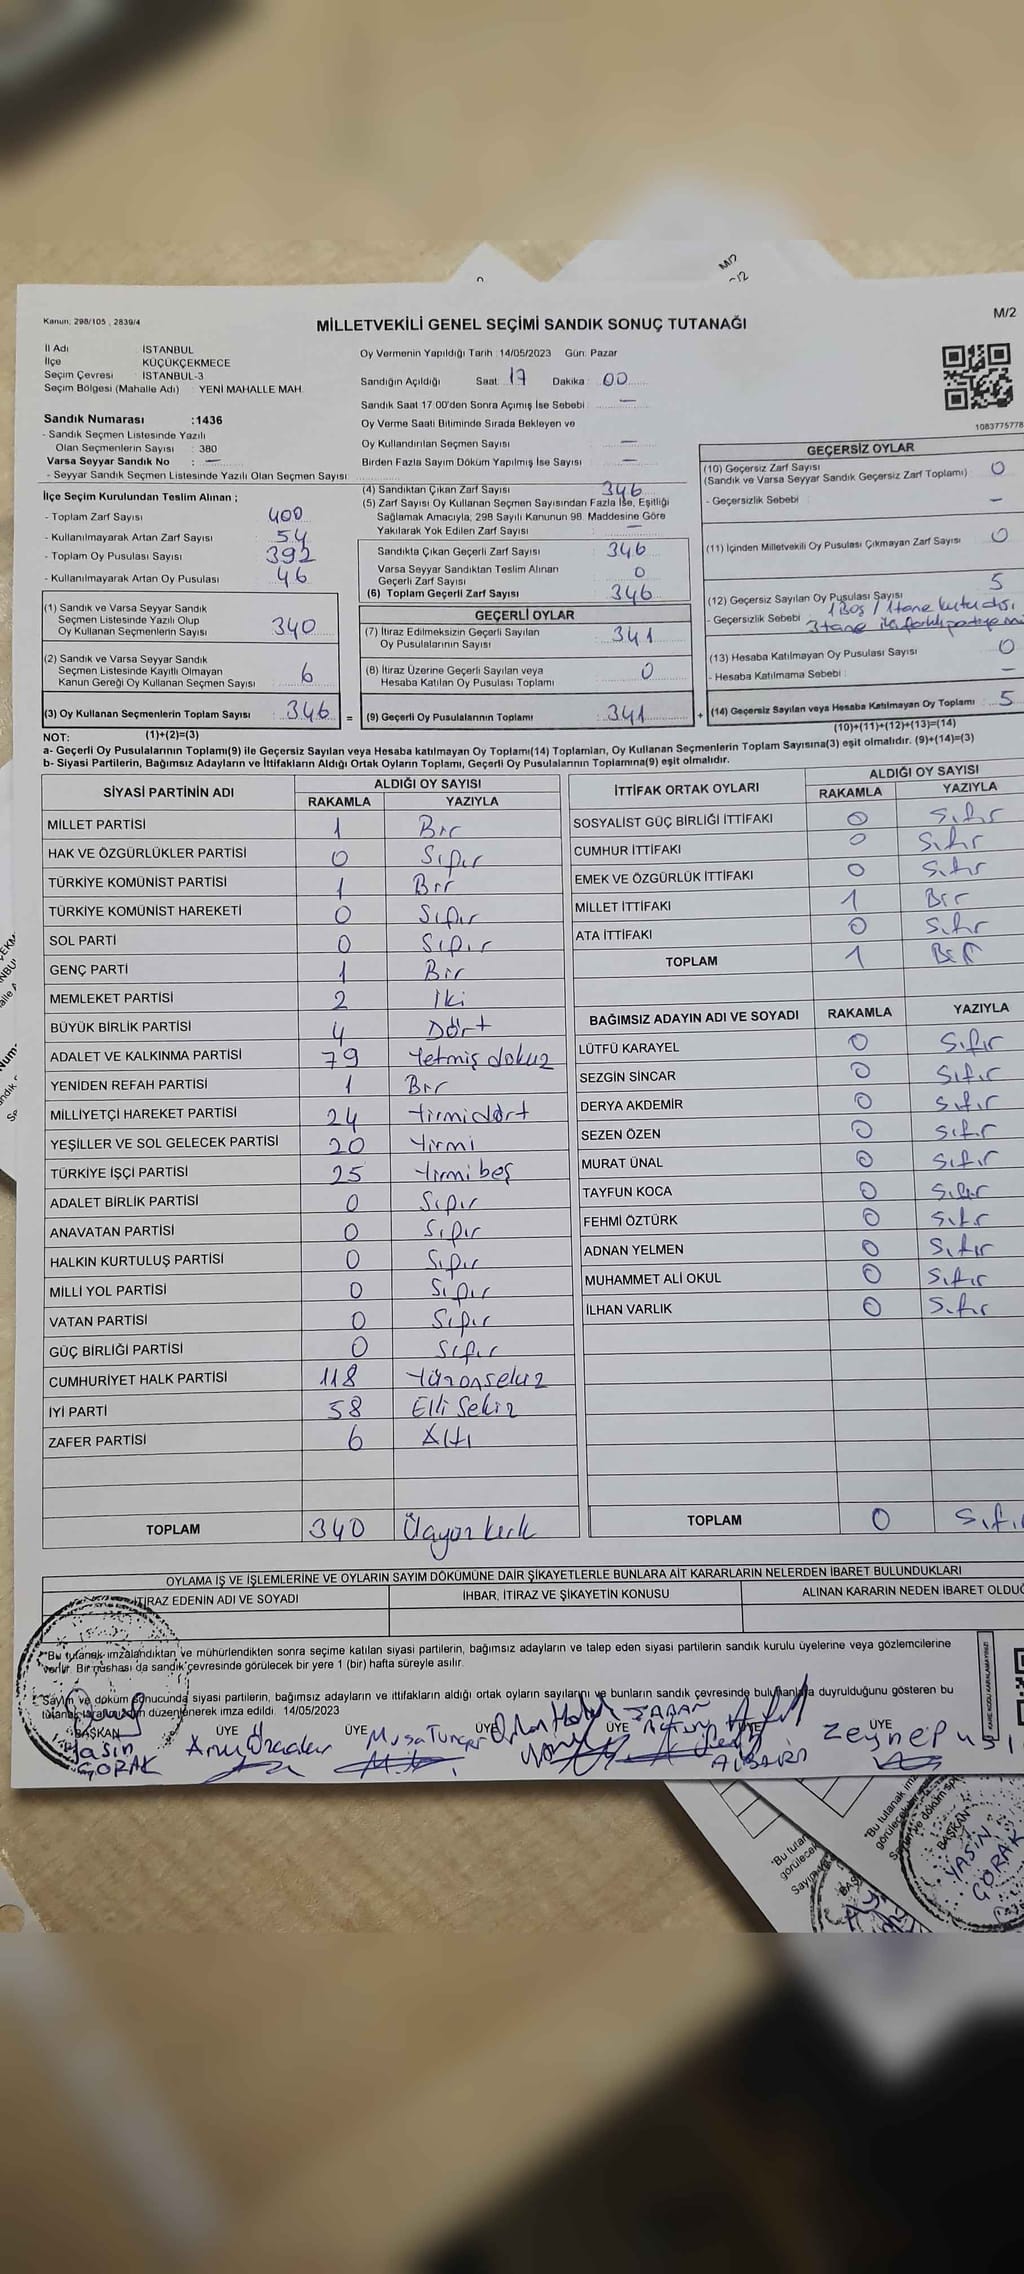 M/2
Kanun, 298/105 , 2839/4
MİLLETVEKİLİ GENEL SEÇİMİ SANDIK SONUÇ TUTANAĞI
M/2
İl Adı İSTANBUL
İlçe KÜÇÜKÇEKMECE
Seçim Çevresi İSTANBUL-3
Seçim Bölgesi (Mahalle Adı) : YENİ MAHALLE MAH.
Oy Vermenin Yapıldığı Tarih :14/05/2023 Gün: Pazar
Sandığın Açıldığı Saat: 17 Dakika : 00
Sandık Saat 17:00'den Sonra Açımış İse Sebebi : —
Oy Verme Saati Bitiminde Sırada Bekleyen ve
Oy Kullandırılan Seçmen Sayısı —
Birden Fazla Sayım Döküm Yapılmış İse Sayısı —
1083775778
Sandık Numarası :1436
- Sandık Seçmen Listesinde Yazılı
Olan Seçmenlerin Sayısı : 380
Varsa Seyyar Sandık No : —
- Seyyar Sandık Seçmen Listesinde Yazılı Olan Seçmen Sayısı
İlçe Seçim Kurulundan Teslim Alınan ;
- Toplam Zarf Sayısı 400
- Kullanılmayarak Artan Zarf Sayısı 54
- Toplam Oy Pusulası Sayısı 392
- Kullanılmayarak Artan Oy Pusulası 46
(1) Sandık ve Varsa Seyyar Sandık
Seçmen Listesinde Yazılı Olup
Oy Kullanan Seçmenlerin Sayısı 340
(2) Sandık ve Varsa Seyyar Sandık
Seçmen Listesinde Kayıtlı Olmayan
Kanun Gereği Oy Kullanan Seçmen Sayısı 6
(3) Oy Kullanan Seçmenlerin Toplam Sayısı 346 =
(4) Sandıktan Çıkan Zarf Sayısı 346
(5) Zarf Sayısı Oy Kullanan Seçmen Sayısından Fazla İse, Eşitliği
Sağlamak Amacıyla, 298 Sayılı Kanunun 98. Maddesine Göre
Yakılarak Yok Edilen Zarf Sayısı : —
Sandıkta Çıkan Geçerli Zarf Sayısı 346
Varsa Seyyar Sandıktan Teslim Alınan
Geçerli Zarf Sayısı 0
(6) Toplam Geçerli Zarf Sayısı 346
GEÇERLİ OYLAR
(7) İtiraz Edilmeksizin Geçerli Sayılan
Oy Pusulalarının Sayısı 341
(8) İtiraz Üzerine Geçerli Sayılan veya
Hesaba Katılan Oy Pusulası Toplamı 0
(9) Geçerli Oy Pusulalarının Toplamı 341 +
GEÇERSİZ OYLAR
(10) Geçersiz Zarf Sayısı
(Sandık ve Varsa Seyyar Sandık Geçersiz Zarf Toplamı) 0
- Geçersizlik Sebebi : —
(11) İçinden Milletvekili Oy Pusulası Çıkmayan Zarf Sayısı 0
(12) Geçersiz Sayılan Oy Pusulası Sayısı 5
- Geçersizlik Sebebi 1 Boş / 1 tane kutu dışı
3 tane iki farklı partiye
(13) Hesaba Katılmayan Oy Pusulası Sayısı 0
- Hesaba Katılmama Sebebi : —
(14) Geçersiz Sayılan veya Hesaba Katılmayan Oy Toplamı 5
NOT: (1)+(2)=(3) (10)+(11)+(12)+(13)=(14)
a- Geçerli Oy Pusulalarının Toplamı(9) ile Geçersiz Sayılan veya Hesaba katılmayan Oy Toplamı(14) Toplamları, Oy Kullanan Seçmenlerin Toplam Sayısına(3) eşit olmalıdır. (9)+(14)=(3)
b- Siyasi Partilerin, Bağımsız Adayların ve İttifakların Aldığı Ortak Oyların Toplamı, Geçerli Oy Pusulalarının Toplamına(9) eşit olmalıdır.
SİYASİ PARTİNİN ADI ALDIĞI OY SAYISI
RAKAMLA YAZIYLA
MİLLET PARTİSİ 1 Bir
HAK VE ÖZGÜRLÜKLER PARTİSİ 0 Sıfır
TÜRKİYE KOMÜNİST PARTİSİ 1 Bir
TÜRKİYE KOMÜNİST HAREKETİ 0 Sıfır
SOL PARTİ 0 Sıfır
GENÇ PARTİ 1 Bir
MEMLEKET PARTİSİ 2 İki
BÜYÜK BİRLİK PARTİSİ 4 Dört
ADALET VE KALKINMA PARTİSİ 79 Yetmiş dokuz
YENİDEN REFAH PARTİSİ 1 Bir
MİLLİYETÇİ HAREKET PARTİSİ 24 Yirmidört
YEŞİLLER VE SOL GELECEK PARTİSİ 20 Yirmi
TÜRKİYE İŞÇİ PARTİSİ 25 Yirmi beş
ADALET BİRLİK PARTİSİ 0 Sıfır
ANAVATAN PARTİSİ 0 Sıfır
HALKIN KURTULUŞ PARTİSİ 0 Sıfır
MİLLİ YOL PARTİSİ 0 Sıfır
VATAN PARTİSİ 0 Sıfır
GÜÇ BİRLİĞİ PARTİSİ 0 Sıfır
CUMHURİYET HALK PARTİSİ 118 Yüzonsekiz
İYİ PARTİ 58 Elli Sekiz
ZAFER PARTİSİ 6 Altı
TOPLAM 340 Üçyüz kırk
İTTİFAK ORTAK OYLARI ALDIĞI OY SAYISI
RAKAMLA YAZIYLA
SOSYALİST GÜÇ BİRLİĞİ İTTİFAKI 0 Sıfır
CUMHUR İTTİFAKI 0 Sıfır
EMEK VE ÖZGÜRLÜK İTTİFAKI 0 Sıfır
MİLLET İTTİFAKI 1 Bir
ATA İTTİFAKI 0 Sıfır
TOPLAM 1 Bir
BAĞIMSIZ ADAYIN ADI VE SOYADI RAKAMLA YAZIYLA
LÜTFÜ KARAYEL 0 Sıfır
SEZGİN SİNCAR 0 Sıfır
DERYA AKDEMİR 0 Sıfır
SEZEN ÖZEN 0 Sıfır
MURAT ÜNAL 0 Sıfır
TAYFUN KOCA 0 Sıfır
FEHMİ ÖZTÜRK 0 Sıfır
ADNAN YELMEN 0 Sıfır
MUHAMMET ALİ OKUL 0 Sıfır
İLHAN VARLIK 0 Sıfır
TOPLAM 0 Sıfı
OYLAMA İŞ VE İŞLEMLERİNE VE OYLARIN SAYIM DÖKÜMÜNE DAİR ŞİKAYETLERLE BUNLARA AİT KARARLARIN NELERDEN İBARET BULUNDUKLARI
İTİRAZ EDENİN ADI VE SOYADI İHBAR, İTİRAZ VE ŞİKAYETİN KONUSU ALINAN KARARIN NEDEN İBARET OLDUĞ
"Bu tutanak imzalandıktan ve mühürlendikten sonra seçime katılan siyasi partilerin, bağımsız adayların ve talep eden siyasi partilerin sandık kurulu üyelerine veya gözlemcilerine
verilir. Bir nüshası da sandık çevresinde görülecek bir yere 1 (bir) hafta süreyle asılır.
Sayım ve döküm sonucunda siyasi partilerin, bağımsız adayların ve ittifakların aldığı ortak oyların sayılarını ve bunların sandık çevresinde bulunanlara duyrulduğunu gösteren bu
tutanak tarafımızdan düzenlenerek imza edildi. 14/05/2023
BAŞKAN ÜYE ÜYE ÜYE ÜYE ÜYE ÜYE
Yasin
GÖRAK
Musa Tuncer
Zeynep
"Bu tutanak
görülecek
Sayım ve döküm
BAŞKAN
YASİN
GÖRAK